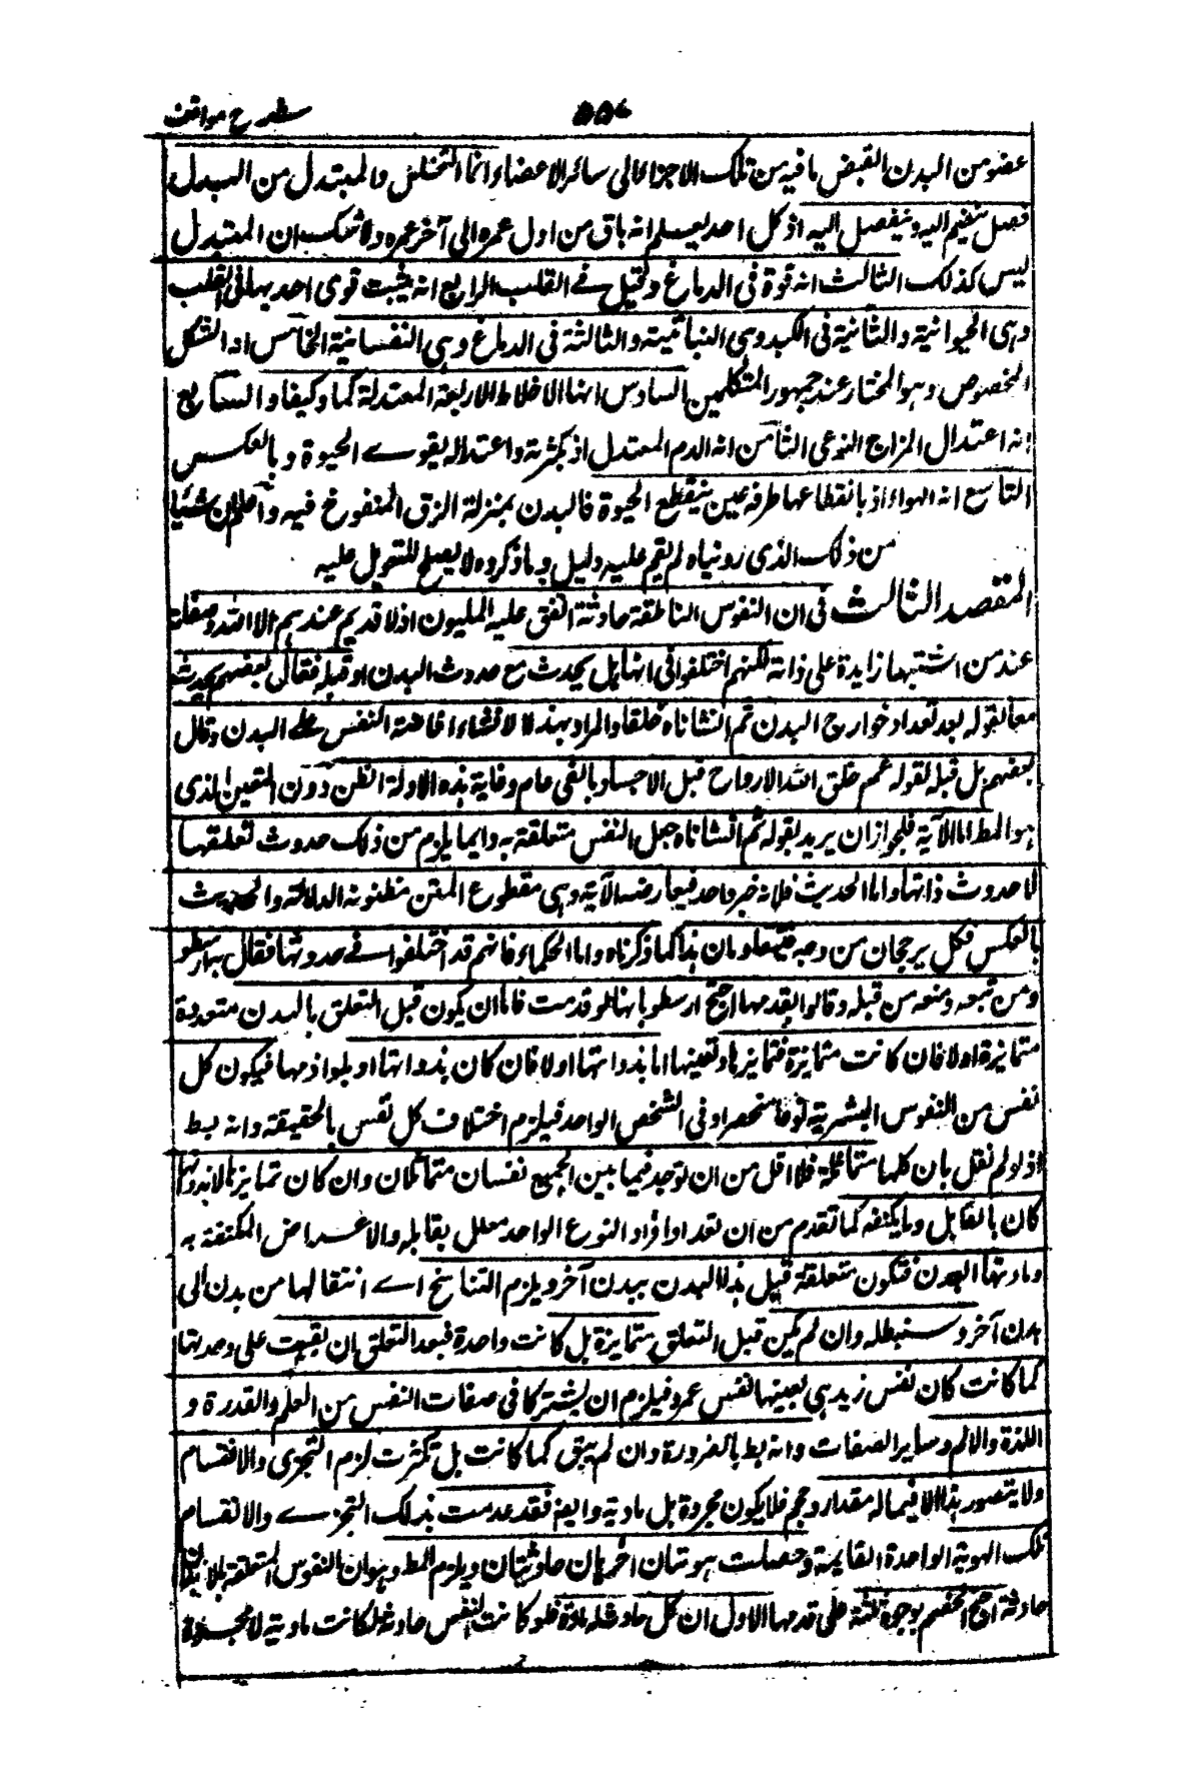 شرح مواقف
۵۵۷
عضو من البدن انقبض ما فيه من تلك الاجزاء الى سائر الاعضاء انما التخلل والمتبدل من البدل
فصل ينضم اليه وينفصل اليه اذ كل احد يعلم انه باق من اول عمره الى آخر عمره ولا شك ان المتبدل
ليس كذلك الثالث انه قوة فى الدماغ وقيل فے القلب الرابع انه ثبت قوى احديها فى القلب
وهى الحيوانية والثانية فى الكبد وهى النباتية والثالثة فى الدماغ وهى النفسانية الخامس انه الشكل
المخصوص وهو المختار عند جمهور المتكلمين السادس انها الاخلاط الاربعة المعتدلة كما وكيفا والسابع
انه اعتدال المزاج النوعى الثامن انه الدم المعتدل اذ بكثرته واعتداله يقوے الحيوة وبالعكس
التاسع انه الهواء اذ بانقطاعها طرفة عين ينقطع الحيوة فالبدن بمنزلة الزق المنفوخ فيه واعلم ان شيئا
من ذلك الذى رويناه لم يقم عليه دليل وما ذكروه لا يصلح للتعويل عليه
المقصد الثالث فى ان النفوس الناطقة حادثة اتفق عليه المليون اذ لا قديم عندهم الا الله وصفاته
عند من اثبتها زايدة على ذاته لكنهم اختلفوا فى انها هل يحدث مع حدوث البدن او قبله فقال بعضهم يحدث
معا لقوله بعد تعداد خوارج البدن ثم انشاناه خلقا والمراد بهذا الانشاء افاضة النفس علے البدن وقال
بعضهم بل قبله لقوله عم خلق الله الارواح قبل الاجساد بالفى عام وغاية هذه الادلة الظن دون اليقين الذى
هو المط اما الآية فلجواز ان يريد بقوله ثم انشاناه جعل النفس متعلقة به وايما يلزم من ذلك حدوث تعلقها
لا حدوث ذاتها واما الحديث فلانه خبر واحد فيعارضه الآية وهى مقطوع المتن مظنونة الدلالة والحديث
بالعكس فكل يرجحان من وجه فيتقاومان هذا كما ذكرناه واما الحكماء فانهم قد اختلفوا فے حدوثها فقال بها ارسطو
ومن تبعه ومنعه من قبله وقالوا بقدمها احتج ارسطو بانها لو قدمت فاما ان يكون قبل التعلق بالبدن متعددة
متمايزة اولا فان كانت متمايزة فتمايزها وتعينها اما بذواتها اولا فان كان بذواتها او بلوازمها فيكون كل
نفس من النفوس البشرية نوعا منحصرا فى الشخص الواحد فيلزم اختلاف كل نفس بالحقيقة وانه بط
اذ لو لم نقل بان كلها متماثلة فلا اقل من ان توجد فيما بين الجميع نفسان متماثلان وان كان تمايزها لا بذواتها
كان بالقابل وما يكتنفه كما تقدم من ان تعدد افراد النوع الواحد معلل بقابله والاعراض المكتنفة به
ومادتها البدن فتكون متعلقة قبل هذا البدن ببدن آخر ويلزم التناسخ اے انتقالها من بدن الى
بدن آخر وسنبطله وان لم يكن قبل التعلق متمايزة بل كانت واحدة فبعد التعلق ان بقيت على وحدتها
كما كانت كان نفس زيد هى بعينها نفس عمرو فيلزم ان يشتركا فى صفات النفس من العلم والقدرة و
اللذة والالم وساير الصفات وانه بط بالضرورة وان لم يبق كما كانت بل تكثرت لزم التجزى والانقسام
ولا يتصور هذا الا فيما له مقدار وحجم فلا يكون مجردة بل مادية وايضا فقد عدمت بذلك التجزے والانقسام
تلك الهوية الواحدة القايمة وحصلت هويتان اخريان حادثتان ويلزم المط وهو ان النفوس المتعلقة بالابدان
حادثة احتج الخصم بوجوه ثلثة على قدمها الاول ان كل حادث له مادة فلو كانت النفس حادثة لكانت مادية لا مجردة